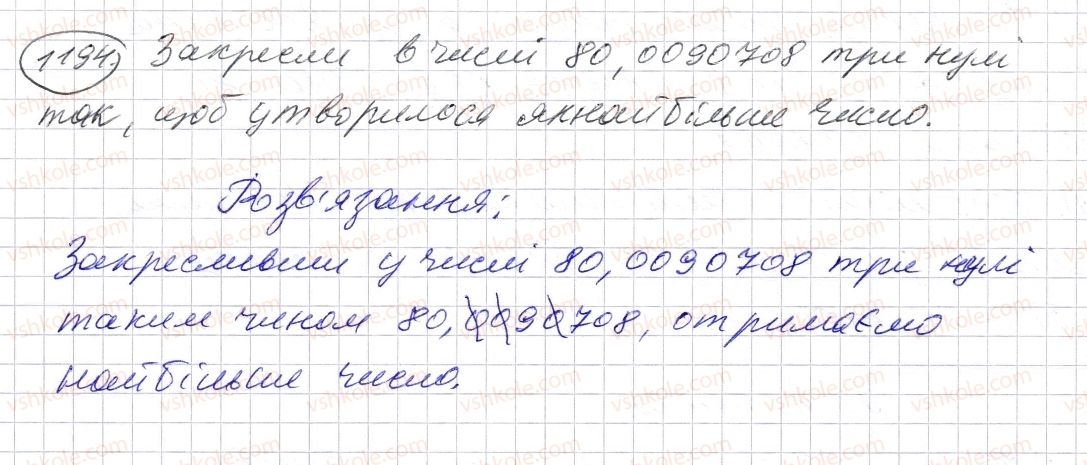 1194) Закресли в числі 80,0090708 три нулі
так, щоб утворилося якнайбільше число.
Розв'язання:
Закресливши у числі 80,0090708 три нулі
таким чином 80,0090708, отримаємо
найбільше число.